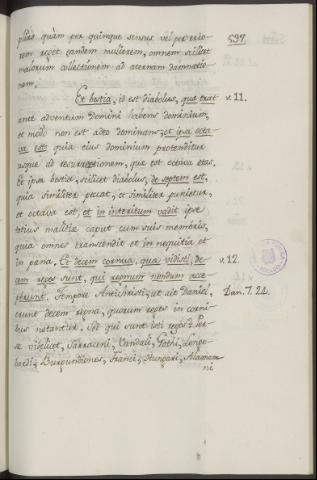 pliès quàm per quinque sensus vel per erro-
rem regit eandem mulierem, omnem scilicet
malorum collectionem ad æternam damnatio-
nem.
597.
Et bestia, id est diabolus, quæ erat
v. 11.
ante adventum Domini habens dominium,
et modò non est adeo dominans; et ipsa octa-
va est quia eius dominium protenditur
usque ad resurrectionem, quæ est octava etas.
Et ipsa bestia, scilicet diabolus, de septem est,
quia similiter peccat, et similiter punietur,
et octava est, et in interitum vadit ipse
totius malitiæ caput cum suis membris,
quia omnes transcendit et in nequitia et
in pœna. Et decem cornua, quæ vidisti, de-
v. 12.
cem reges sunt, qui regnum nondum acce-
perunt. Tempore Antichristi, ut ait Daniel,
Dan. 7. 24.
erunt decem regna, quorum reges in corni-
bus notantur. Sed qui sunt isti reges?
se videlicet, Sarraceni, Vandali, Gothi, Longo-
bardi, Burgundiones, Franci, Hungari, Alaman-
ni